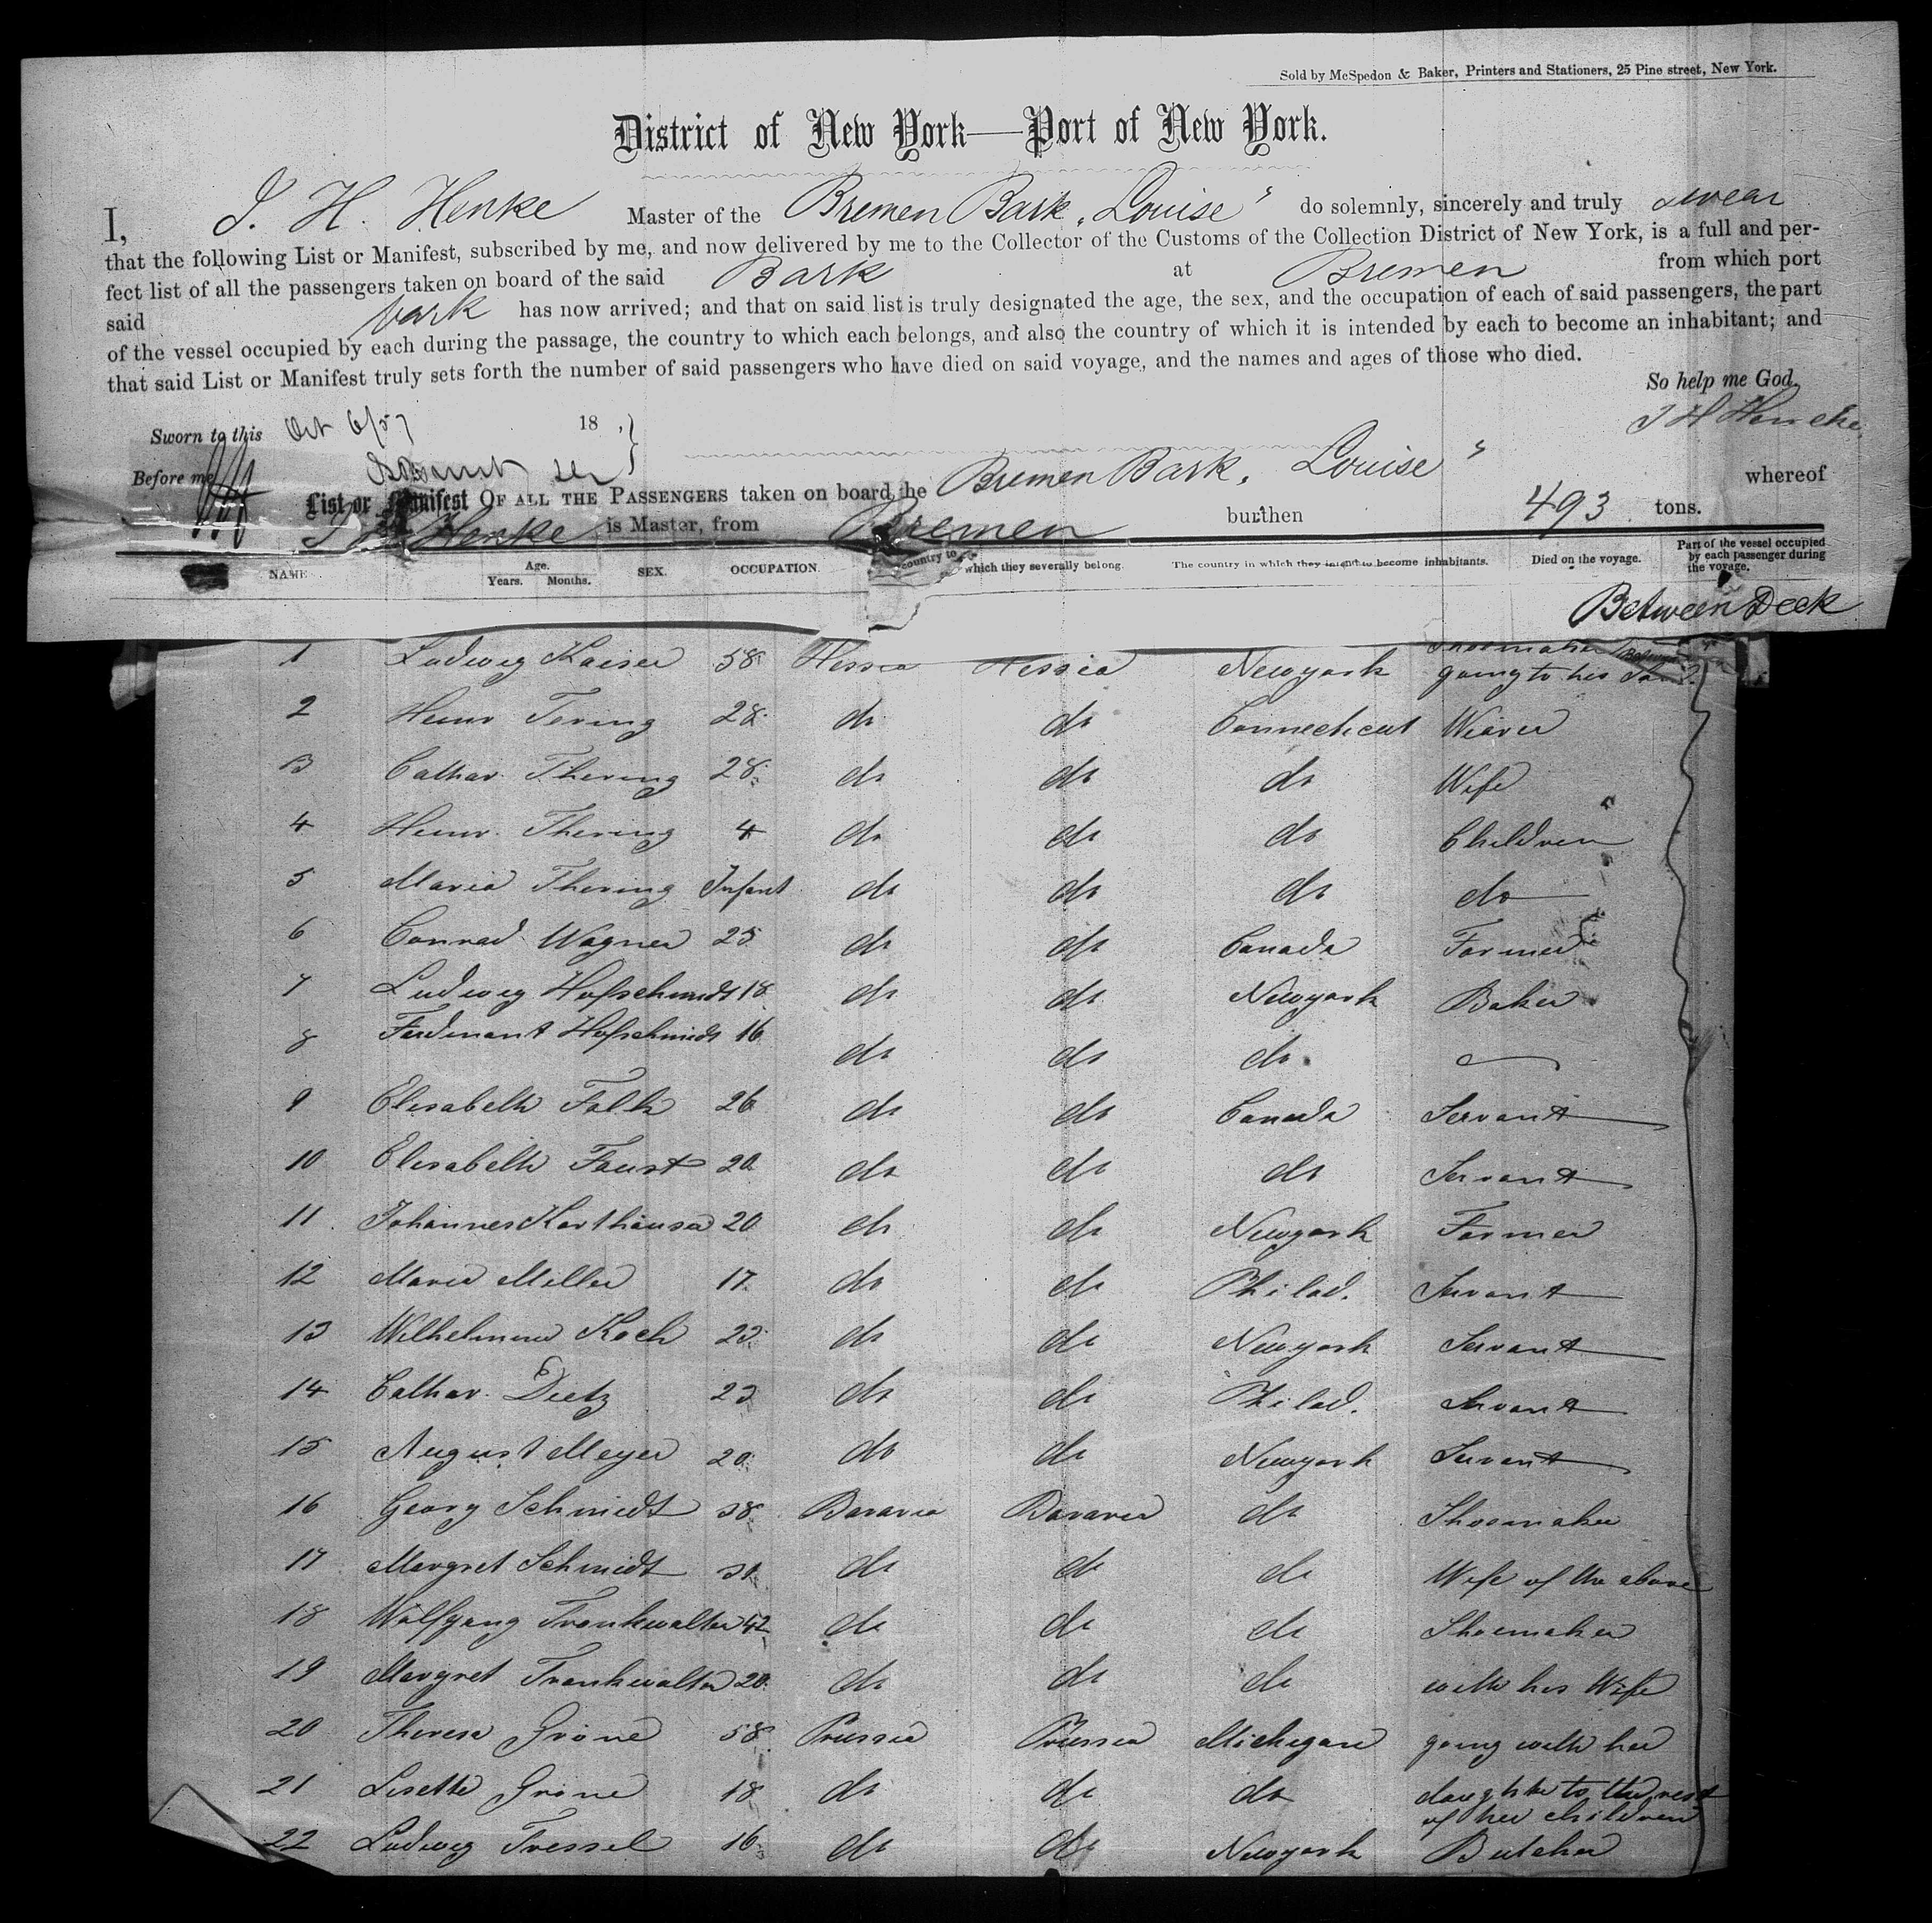 Sold by McSpedon & Baker, Printers and Stationers, 25 Pine street, New York.
District of New York—Port of New York.
I, J. H. Henke Master of the Bremen Bark „Louise" do solemnly, sincerely and truly swear
that the following List or Manifest, subscribed by me, and now delivered by me to the Collector of the Customs of the Collection District of New York, is a full and per-
fect list of all the passengers taken on board of the said Bark at Bremen from which port
said bark has now arrived; and that on said list is truly designated the age, the sex, and the occupation of each of said passengers, the part
of the vessel occupied by each during the passage, the country to which each belongs, and also the country of which it is intended by each to become an inhabitant; and
that said List or Manifest truly sets forth the number of said passengers who have died on said voyage, and the names and ages of those who died.
So help me God.
Sworn to this Oct 6/57 18 ,
Before me
List or Manifest OF ALL THE PASSENGERS taken on board the Bremen Bark „Louise" whereof
J H Henke is Master, from Bremen burthen 493 tons.
NAME. Age. Years. Months. SEX. OCCUPATION. country to which they severally belong. The country in which they intend to become inhabitants. Died on the voyage. Part of the vessel occupied by each passenger during the voyage.
Between Deck
1 Ludwig Kaiser 58 Hessia Hessia Newyork Shoemaker going to his
2 Heinr Tering 28 do do Connecticut Weaver
3 Cathar. Thering 28 do do do Wife
4 Heinr. Thering 4 do do do Children
5 Maria Thering Infant do do do do
6 Conrad Wagner 25 do do Canada Farmer
7 Ludwig Hofschmidt 18 do do Newyork Baker
8 Ferdinant Hofschmidt 16 do do do
9 Elisabeth Falk 26 do do Canada Servant
10 Elisabeth Faust 20 do do do Servant
11 Johannes Karthäuser 20 do do Newyork Farmer
12 Marie Miller 17 do do Philad. Servant
13 Wilhelmine Koch 23 do do Newyork Servant
14 Cathar. Dietz 23 do do Philad. Servant
15 August Meyer 20 do do Newyork Servant
16 Georg Schmidt 38 Bavaria Bavaria do Shoemaker
17 Margret Schmidt 31 do do do Wife of the above
18 Wolfgang Trankwalter 42 do do do Shoemaker
19 Margret Trankwalter 20 do do do with his Wife
20 Therese Gröne 58 Prussia Prussia Michigan going with her
21 Lisette Gröne 18 do do do daughter to the rest
of her children
22 Ludwig Tressel 16 do do Newyork Butcher